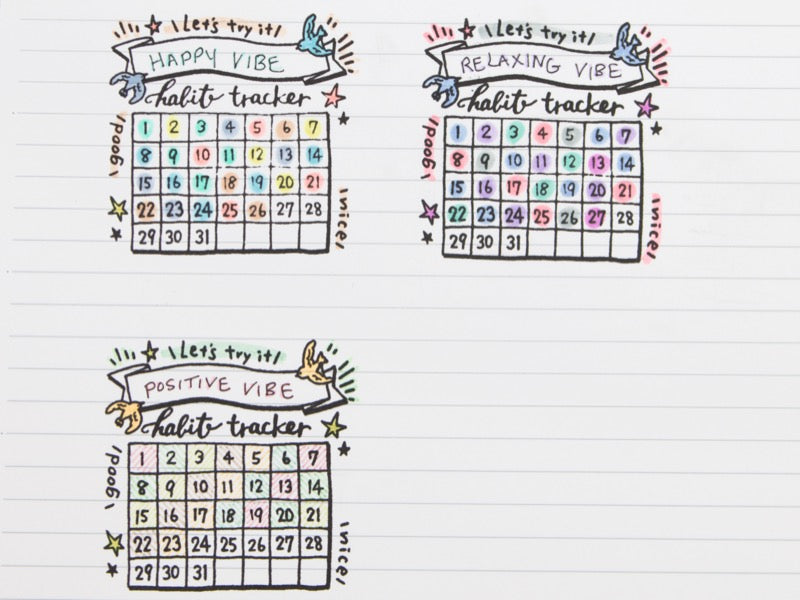 Let's try it!
HAPPY VIBE
habit tracker
good
1 2 3 4 5 6 7
8 9 10 11 12 13 14
15 16 17 18 19 20 21
22 23 24 25 26 27 28
29 30 31
nice!
Let's try it!
RELAXING VIBE
habit tracker
good
1 2 3 4 5 6 7
8 9 10 11 12 13 14
15 16 17 18 19 20 21
22 23 24 25 26 27 28
29 30 31
nice!
Let's try it!
POSITIVE VIBE
habit tracker
good
1 2 3 4 5 6 7
8 9 10 11 12 13 14
15 16 17 18 19 20 21
22 23 24 25 26 27 28
29 30 31
nice!